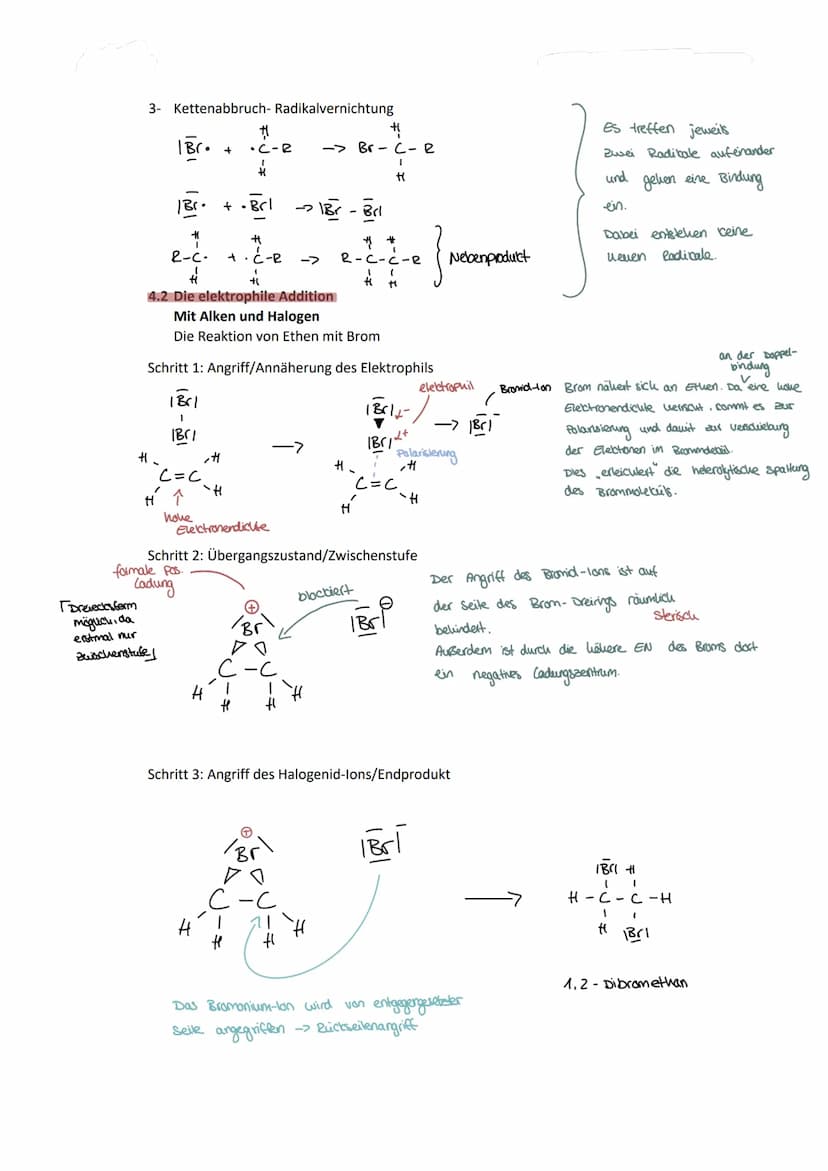 3- Kettenabbruch- Radikalvernichtung
H H
|Br• + •C-R -> Br - C - R
H H
|Br• + •Br| -> |Br - Br|
H H H H
R-C• + •C-R -> R-C-C-R
H H H H
Nebenprodukt
Es treffen jeweils
zwei Radikale aufeinander
und gehen eine Bindung
ein.
Dabei entstehen keine
neuen Radikale.
4.2 Die elektrophile Addition
Mit Alken und Halogen
Die Reaktion von Ethen mit Brom
Schritt 1: Angriff/Annäherung des Elektrophils
|Br|
|Br|
H H
C=C
H H
hohe
Elektronendichte
->
elektrophil
|Br| δ-
|Br| δ+
Polarisierung
H H
C=C
H H
-> |Br|⁻
Bromid-Ion
an der Doppel-
bindung
Brom nähert sich an Ethen. Da eine hohe
Elektronendichte herrscht, kommt es zur
Polarisierung und damit zur Verschiebung
der Elektronen im Brommolekül.
Dies „erleichtert" die heterolytische Spaltung
des Brommoleküls.
Schritt 2: Übergangszustand/Zwischenstufe
formale pos.
Ladung
Dreiecksform
möglich, da
erstmal nur
Zwischenstufe
⊕
Br
C-C
H H H H
blockiert
|Br| ⊖
Der Angriff des Bromid-Ions ist auf
der Seite des Brom-Dreirings räumlich
sterisch
behindert.
Außerdem ist durch die höhere EN des Broms dort
ein negatives Ladungszentrum.
Schritt 3: Angriff des Halogenid-Ions/Endprodukt
⊕
Br
C-C
H H H H
|Br|⁻
->
|Br| H
H-C-C-H
H |Br|
1,2-Dibromethan
Das Bromonium-Ion wird von entgegengesetzter
Seite angegriffen -> Rückseitenangriff